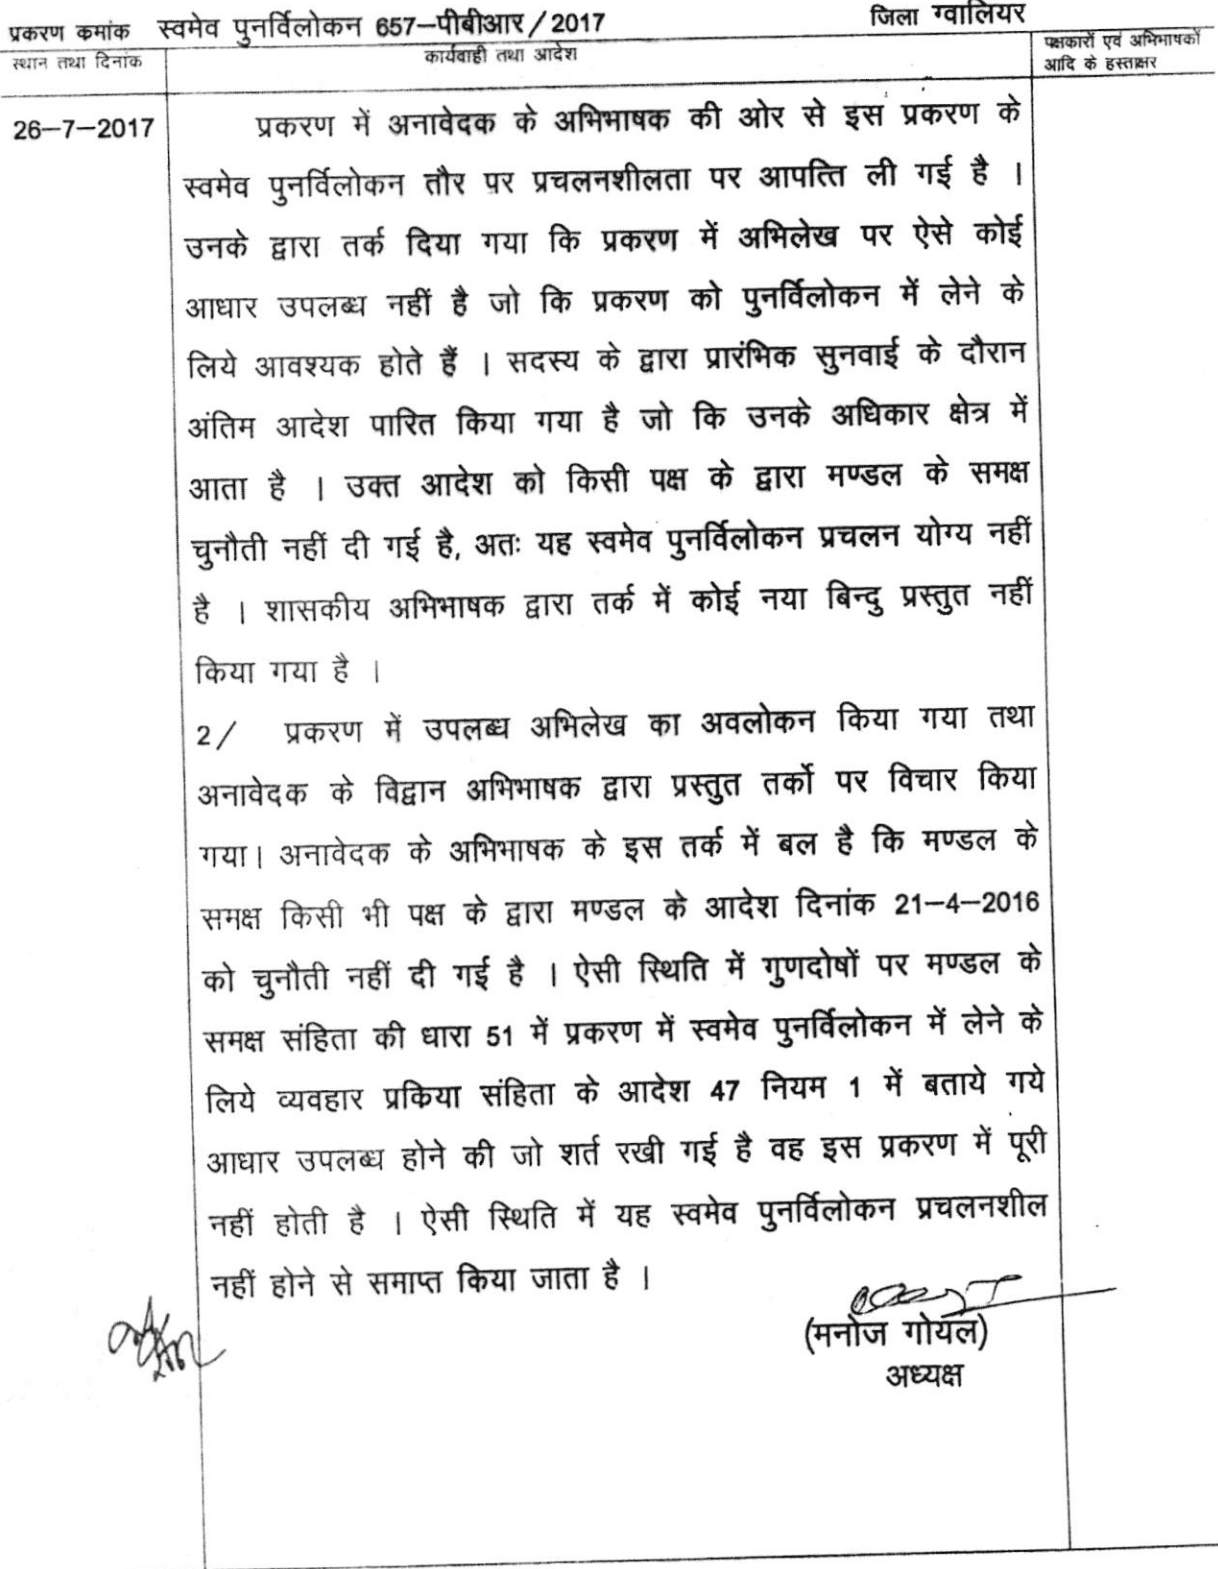 प्रकरण कमांक स्वमेव पुनर्विलोकन 657—पीबीआर/2017 जिला ग्वालियर
स्थान तथा दिनांक कार्यवाही तथा आदेश पक्षकारों एवं अभिभाषकों
आदि के हस्ताक्षर
26—7—2017 प्रकरण में अनावेदक के अभिभाषक की ओर से इस प्रकरण के
स्वमेव पुनर्विलोकन तौर पर प्रचलनशीलता पर आपत्ति ली गई है ।
उनके द्वारा तर्क दिया गया कि प्रकरण में अभिलेख पर ऐसे कोई
आधार उपलब्ध नहीं है जो कि प्रकरण को पुनर्विलोकन में लेने के
लिये आवश्यक होते हैं । सदस्य के द्वारा प्रारंभिक सुनवाई के दौरान
अंतिम आदेश पारित किया गया है जो कि उनके अधिकार क्षेत्र में
आता है । उक्त आदेश को किसी पक्ष के द्वारा मण्डल के समक्ष
चुनौती नहीं दी गई है, अतः यह स्वमेव पुनर्विलोकन प्रचलन योग्य नहीं
है । शासकीय अभिभाषक द्वारा तर्क में कोई नया बिन्दु प्रस्तुत नहीं
किया गया है ।
2/ प्रकरण में उपलब्ध अभिलेख का अवलोकन किया गया तथा
अनावेदक के विद्वान अभिभाषक द्वारा प्रस्तुत तर्को पर विचार किया
गया। अनावेदक के अभिभाषक के इस तर्क में बल है कि मण्डल के
समक्ष किसी भी पक्ष के द्वारा मण्डल के आदेश दिनांक 21—4—2016
को चुनौती नहीं दी गई है । ऐसी स्थिति में गुणदोषों पर मण्डल के
समक्ष संहिता की धारा 51 में प्रकरण में स्वमेव पुनर्विलोकन में लेने के
लिये व्यवहार प्रकिया संहिता के आदेश 47 नियम 1 में बताये गये
आधार उपलब्ध होने की जो शर्त रखी गई है वह इस प्रकरण में पूरी
नहीं होती है । ऐसी स्थिति में यह स्वमेव पुनर्विलोकन प्रचलनशील
नहीं होने से समाप्त किया जाता है ।
(मनोज गोयल)
अध्यक्ष